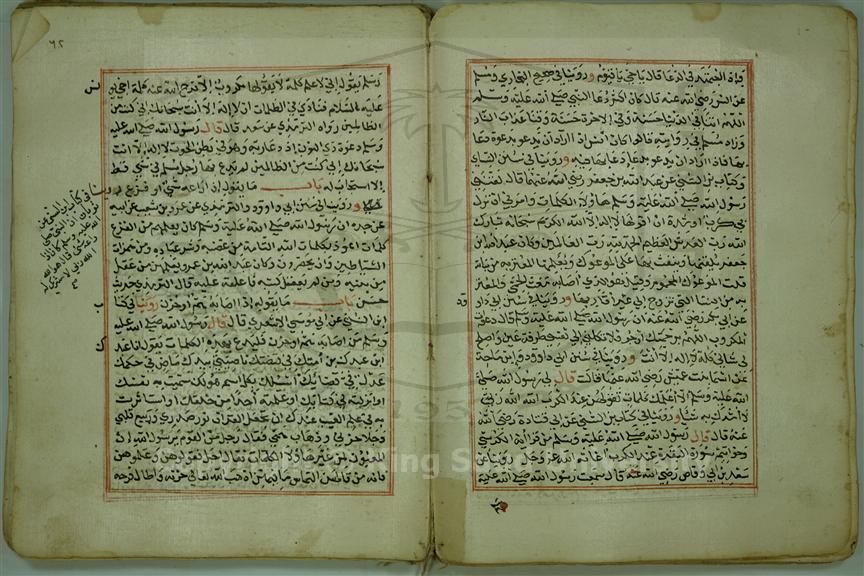 وإذا لقمته في الدعا قال يا حي يا قيوم وروينا في صحيح البخاري ومسلم
عن انس رضي الله عنه قال كان اكثر دعا النبي صلى الله عليه وسلم
اللهم اتنا في الدنيا حسنة وفي الاخرة حسنة وقنا عذاب النار
وزاد مسلم في روايته قال وكان انس اذا اراد ان يدعو بدعوة دعا
بها فاذا اراد ان يدعو بدعا دعا بها فيه وروينا في سنن النساي
وكتاب بن السني عن عبد الله بن جعفر رضي الله عنهما قال لقنني
رسول الله صلى الله عليه وسلم هاولا الكلمات وامرني ان نزل
بي كرب او شدة ان اقولها لا اله الا الله الكريم سبحانه تبارك
الله رب العرش العظيم الحمد لله رب العالمين وكان عبد الله بن
جعفر يلقنها وينفث بها على الموعوك ويعلمها المغتربة من بناته
قلت الموعوك المحموم وقيل هو الذي اصابه مغث الحمى والمغتربة
من النسا التي تزوج الى غير اقاربها وروينا في سنن ابي داود
عن ابي بكرة رضي الله عنه ان رسول الله صلى الله عليه وسلم قال دعوات
المكروب اللهم رحمتك ارجو فلا تكلني الى نفسي طرفة عين واصلح
لي شاني كله لا اله الا انت وروينا في سنن ابي داود وابن ماجة
عن اسما بنت عميس رضي الله عنها قالت قال لي رسول الله صلى
الله عليه وسلم الا اعلمك كلمات تقولهن عند الكرب الله الله ربي
لا اشرك به شيا وروينا في كتاب بن السني عن ابي قتادة رضي الله
عنه قال قال رسول الله صلى الله عليه وسلم من قرا اية الكرسي
وخواتيم سورة البقرة عند الكرب اغاثه الله عز وجل روينا عن
سعد بن ابي وقاص رضي الله عنه قال سمعت رسول الله صلى الله عليه
٦٢
وسلم يقول اني لاعلم كلمة لا يقولها مكروب الا فرج الله عنه كلمة اخي يونس
عليه السلام فنادى في الظلمات ان لا اله الا انت سبحانك اني كنت من
الظالمين رواه الترمذي عن سعد قال قال رسول الله صلى الله عليه
وسلم دعوة ذي النون اذ دعا ربه وهو في بطن الحوت لا اله الا انت
سبحانك اني كنت من الظالمين لم يدع بها رجل مسلم في شي قط
الا استجاب له باب ما يقول اذا راعه شي او فزع روينا
وروينا في سنن ابي داود والترمذي عن عمرو بن شعيب عن ابيه
عن جده ان رسول الله صلى الله عليه وسلم كان يعلمهم من الفزع
كلمات اعوذ بكلمات الله التامة من غضبه وشر عباده ومن همزات
الشياطين وان يحضرون وكان عبد الله بن عمرو يعلمهن من عقل
من بنيه ومن لم يعقل كتبه فاعلقه عليه قال الترمذي حديث
حسن باب ما يقوله اذا اصابه هم او حزن روينا في كتاب
ابن السني عن ابي موسى الاشعري قال قال رسول الله صلى الله عليه
وسلم من اصابه هم او حزن فليدع بهذه الكلمات يقول انا عبدك
ابن عبدك بن امتك في قبضتك ناصيتي بيدك ماض في حكمك
عدل في قضاؤك اسئلك بكل اسم هو لك سميت به نفسك
او انزلته في كتابك او علمته احدا من خلقك او استاثرت
به في علم الغيب عندك ان تجعل القران نور صدري وربيع قلبي
وجلا حزني وذهاب همي فقال رجل من القوم يا رسول الله ان
المغبون لمن غبن هاولا الكلمات فقال اجل فقولوهن وعلموهن
فانه من قالهن التماس ما فيهن اذهب الله تعالى حزنه واطال فرحه
في كتاب ابن السني عن
ثوبان ان النبي صلى
الله عليه وسلم كان اذا
راعه شي قال هو الله
الله ربي لا شريك له